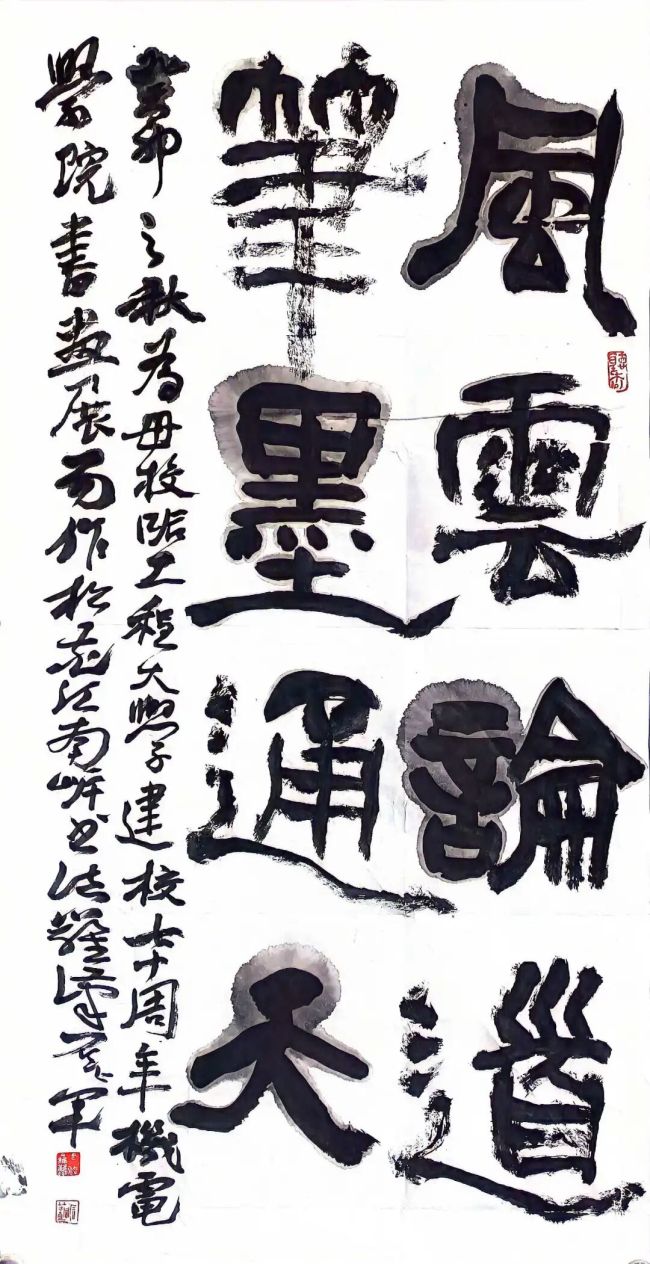 風雲論道
筆墨通天
癸卯之秋為母校哈工程大學建校七十周年機電
學院書畫展而作於江南岸書法軍